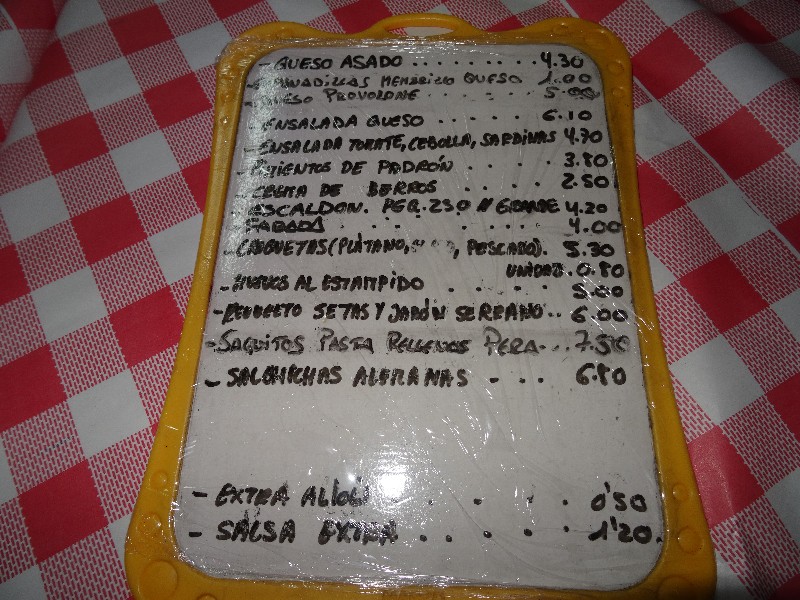 - QUESO ASADO ......... 4.30
MEMBRILLO QUESO 1.00
PROVOLONE ...... 5.00
- ENSALADA QUESO ..... 6.10
- ENSALADA TOMATE, CEBOLLA, SARDINAS 4.70
- PIMIENTOS DE PADRÓN ..... 3.80
DE BERROS ..... 2.50
- ESCALDON. PEQ. 2.30 // GRANDE 4.20
- FABADA ........ 4.00
- CROQUETAS (PLÁTANO, PESCADO). 5.30
UNIDAD. 0.80
- HUEVOS AL ESTAMPIDO ..... 5.00
- REVUELTO SETAS Y JAMÓN SERRANO .. 6.00
- SAQUITOS PASTA RELLENOS PERA ... 7.50
- SALCHICHAS ALEMANAS ... 6.80
- EXTRA ALIOLI ..... 0'50
- SALSA EXTRA ...... 1'20.